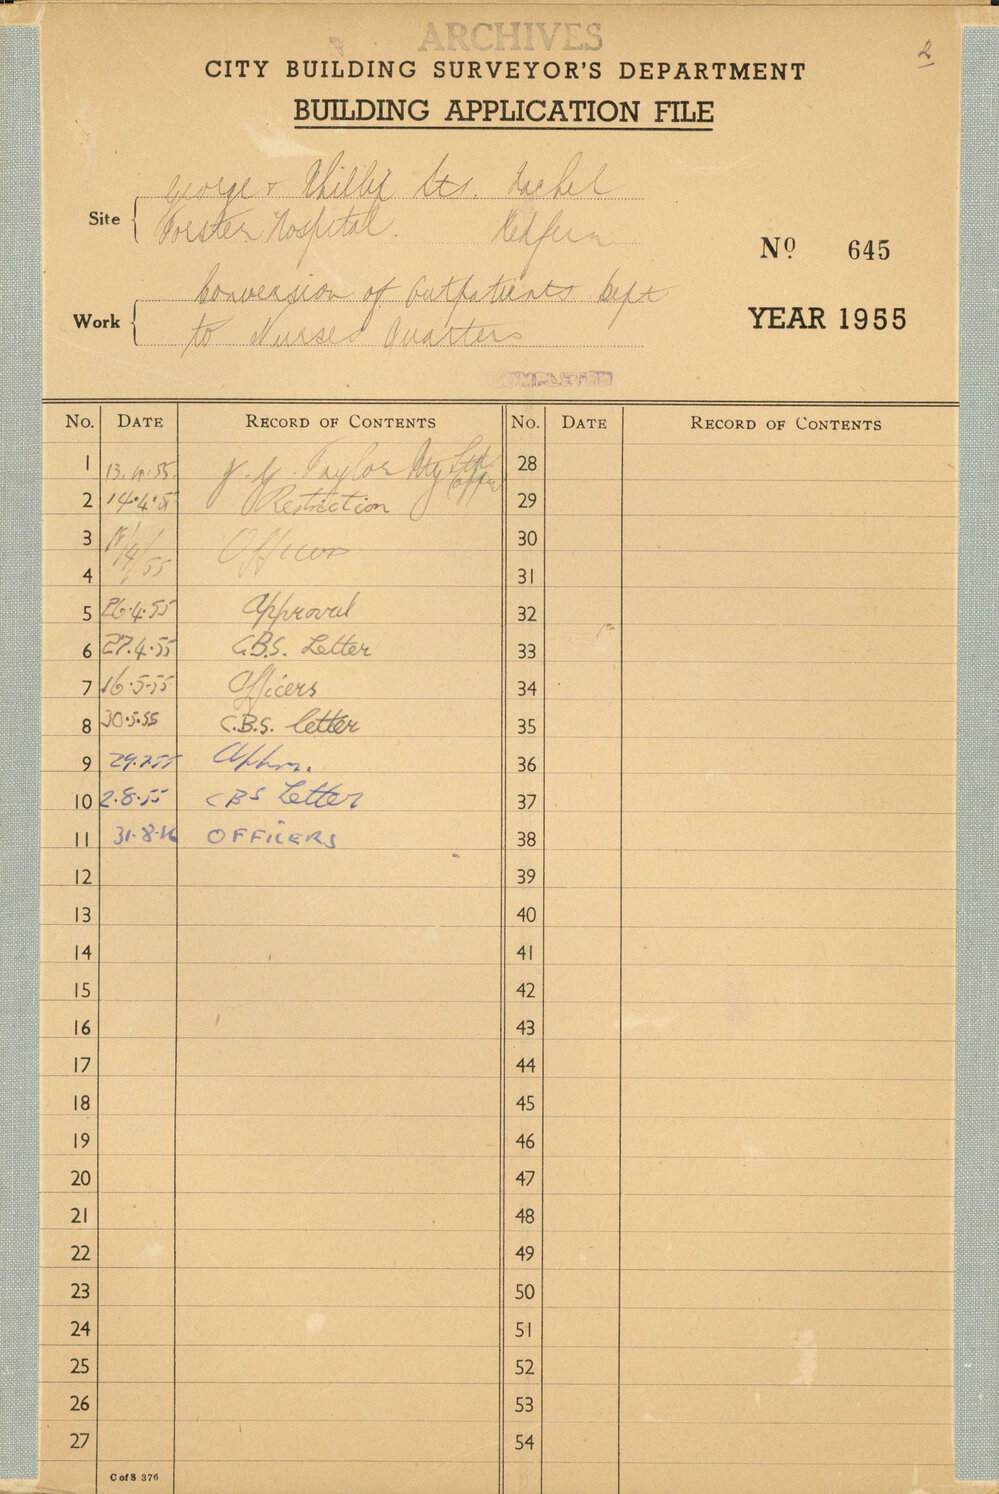 ARCHIVES
2
CITY BUILDING SURVEYOR'S DEPARTMENT
BUILDING APPLICATION FILE
Site
George & Phillip Sts. Rachel
Forster Hospital. Redfern
Nº 645
Work
Conversion of Outpatients Dept
to Nurses Quarters
YEAR 1955
COMPLETED
No. DATE RECORD OF CONTENTS No. DATE RECORD OF CONTENTS
1 13.4.55. Taylor Pty Ltd 28
2 14.4.55 Restriction 29
3 Officers 30
4 /4/55 31
5 26.4.55 Approval 32
6 27.4.55 C.B.S. Letter 33
7 16.5.55 Officers 34
8 30.5.55 C.B.S. letter 35
9 29.7.55 36
10 2.8.55 CBS Letter 37
11 31.8. OFFICERS 38
12 39
13 40
14 41
15 42
16 43
17 44
18 45
19 46
20 47
21 48
22 49
23 50
24 51
25 52
26 53
27 54
C of S 376